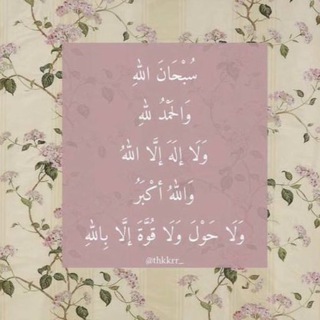 سُبْحَانَ اللهِ
وَالْحَمْدُ للهِ
وَلَا إِلَهَ إِلَّا اللهُ
وَاللهُ أَكْبَرُ
وَلَا حَوْلَ وَلَا قُوَّةَ إِلَّا بِاللهِ
@thkkrr_